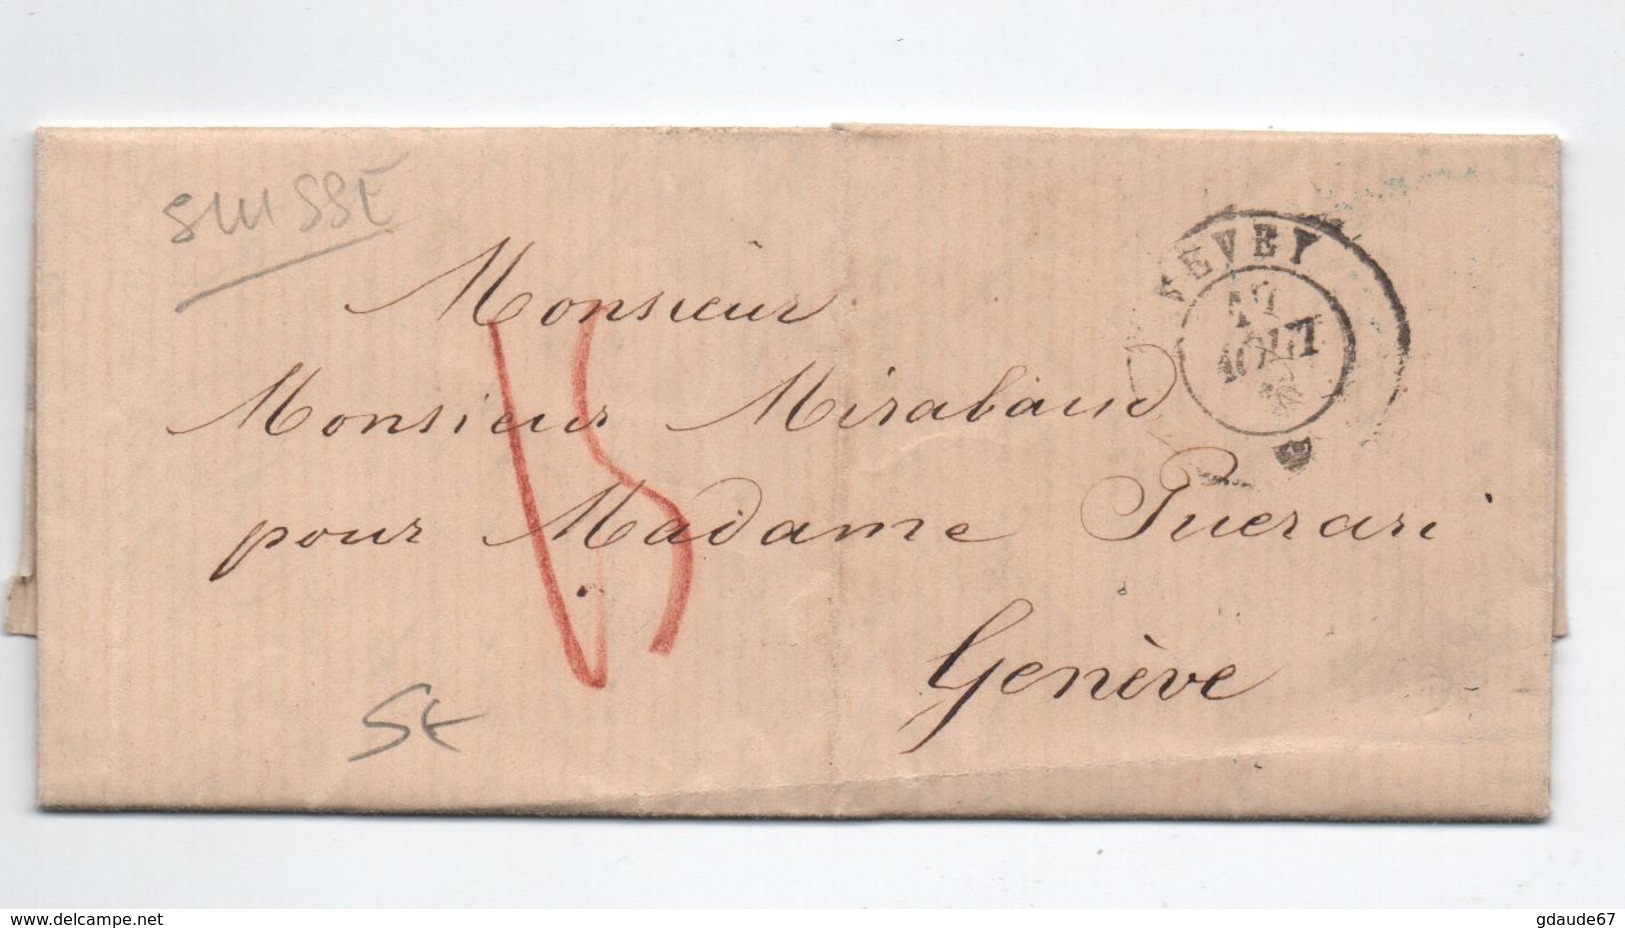 SUISSE
VEVEY
AOUT
Monsieur
Monsieur Mirabaud
pour Madame Puerari
Genève
15
www.delcampe.net
gdaude67